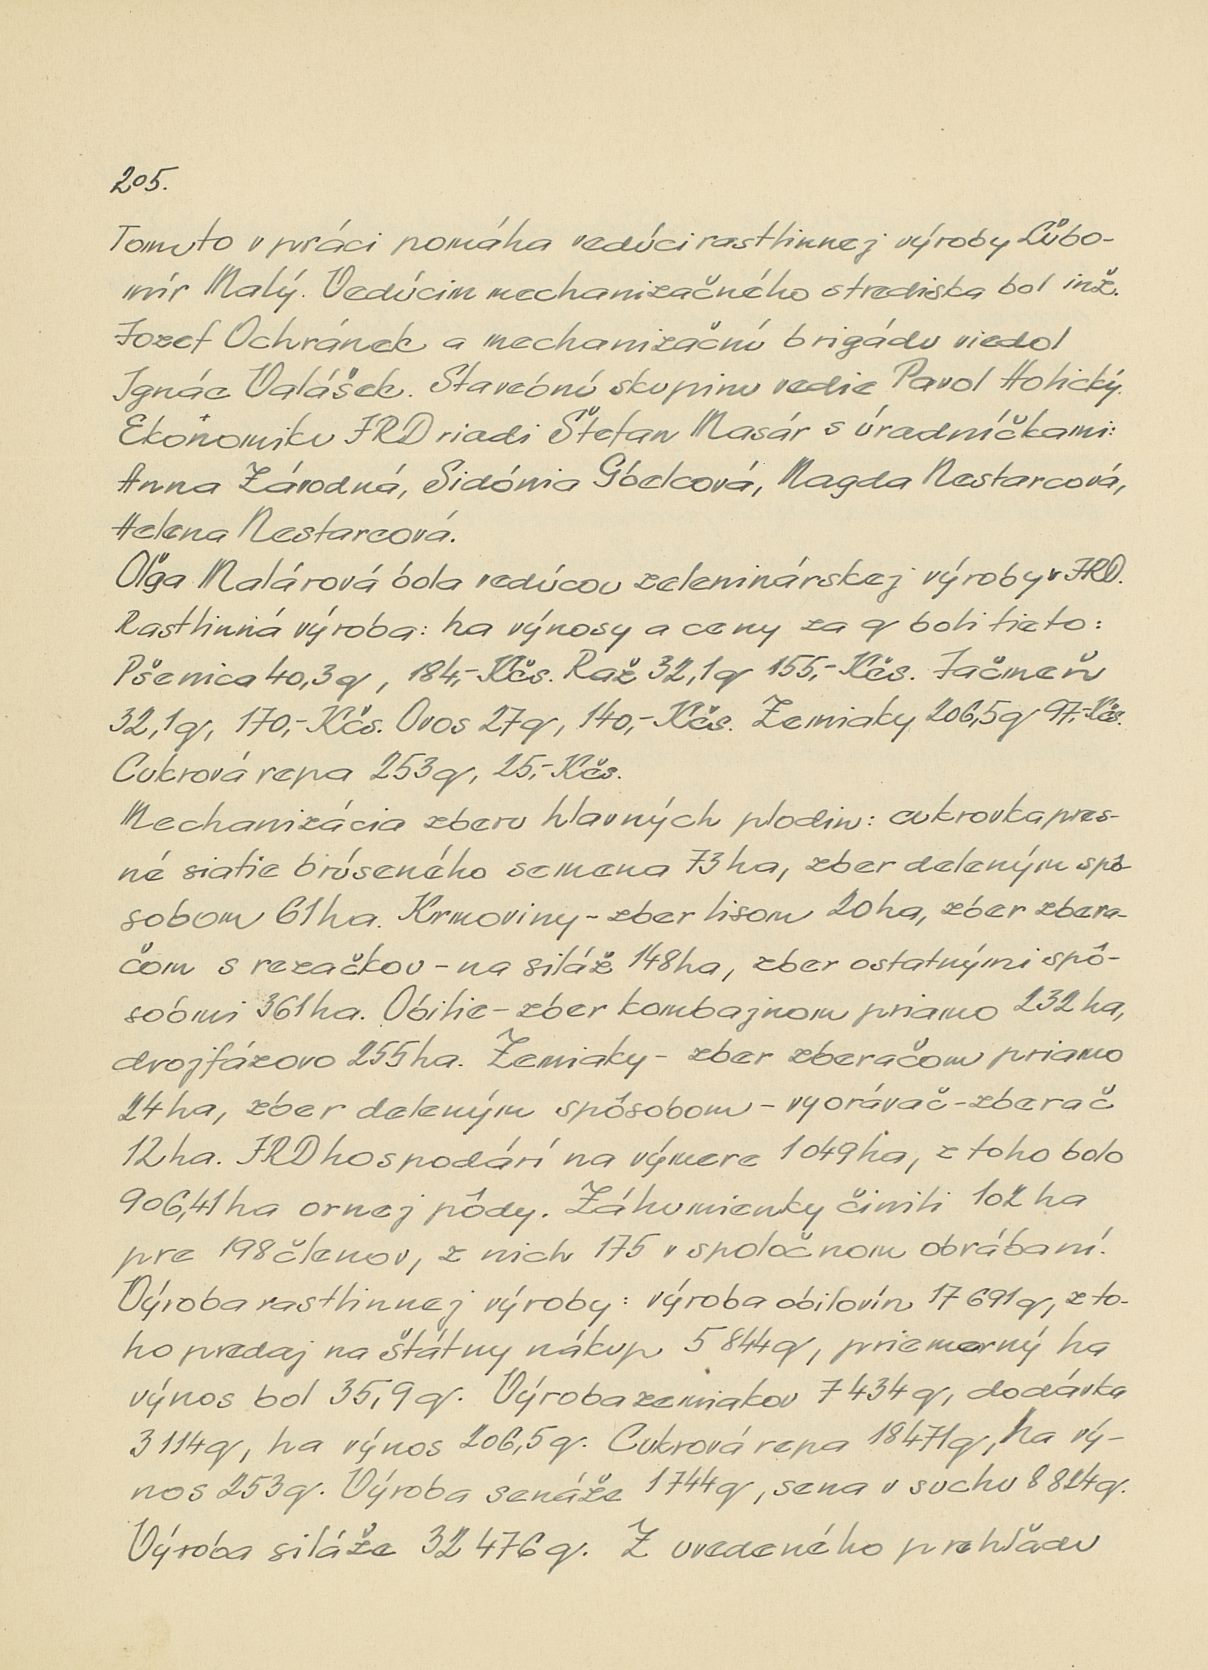 205.
Tomuto v práci pomáha vedúci rastlinnej výroby Ľubo-
mír Malý. Vedúcim mechanizačného strediska bol inž.
Jozef Ochránek a mechanizačnú brigádu viedol
Ignác Valášek. Stavebnú skupinu vedie Pavol Holický.
Ekonomiku JRD riadi Štefan Masár s úradníčkami:
Anna Závodná, Sidónia Góelcová, Magda Nestarcová,
Helena Nestarcová.
Oľga Malárová bola vedúcou zeleninárskej výroby v JRD.
Rastlinná výroba: ha výnosy a ceny za q boli tieto:
Pšenica 40,3q, 184,- Kčs. Raž 32,1q 155,- Kčs. Jačmeň
32,1q, 170,- Kčs. Ovos 27q, 140,- Kčs. Zemiaky 206,5q 97,- Kčs.
Cukrová repa 253q, 25,- Kčs.
Mechanizácia zberu hlavných plodin: cukrovka pres-
né siatie brúseného semena 73 ha, zber deleným spô-
sobom 61 ha. Krmoviny - zber lisom 20 ha, zber zbera-
čom s rezačkou - na siláž 148 ha, zber ostatnými spô-
sobmi 361 ha. Obilie - zber kombajnom priamo 232 ha,
dvojfázovo 255 ha. Zemiaky - zber zberačom priamo
24 ha, zber deleným spôsobom - vyorávač - zberač
12 ha. JRD hospodári na výmere 1 049 ha, z toho bolo
906,41 ha ornej pôdy. Záhumienky činili 102 ha
pre 198 členov, z nich 175 v spoločnom obrábaní.
Výroba rastlinnej výroby: výroba obilovín 17 691q, z to-
ho predaj na štátny nákup 5 844q, priemerný ha
výnos bol 35,9q. Výroba zemiakov 7 434q, dodávka
3 114q, ha výnos 206,5q. Cukrová repa 18 471q, ha vý-
nos 253q. Výroba senáže 1 744q, sena v suchu 8 824q.
Výroba siláže 32 476q. Z uvedeného prehľadu